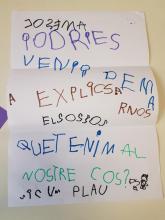 PODRIES
VENIR DEMÀ
A EXPLICSARNOS
ELSOSSOS
QUETENIM AL
NOSTRE COS?
SI C UM PLAU